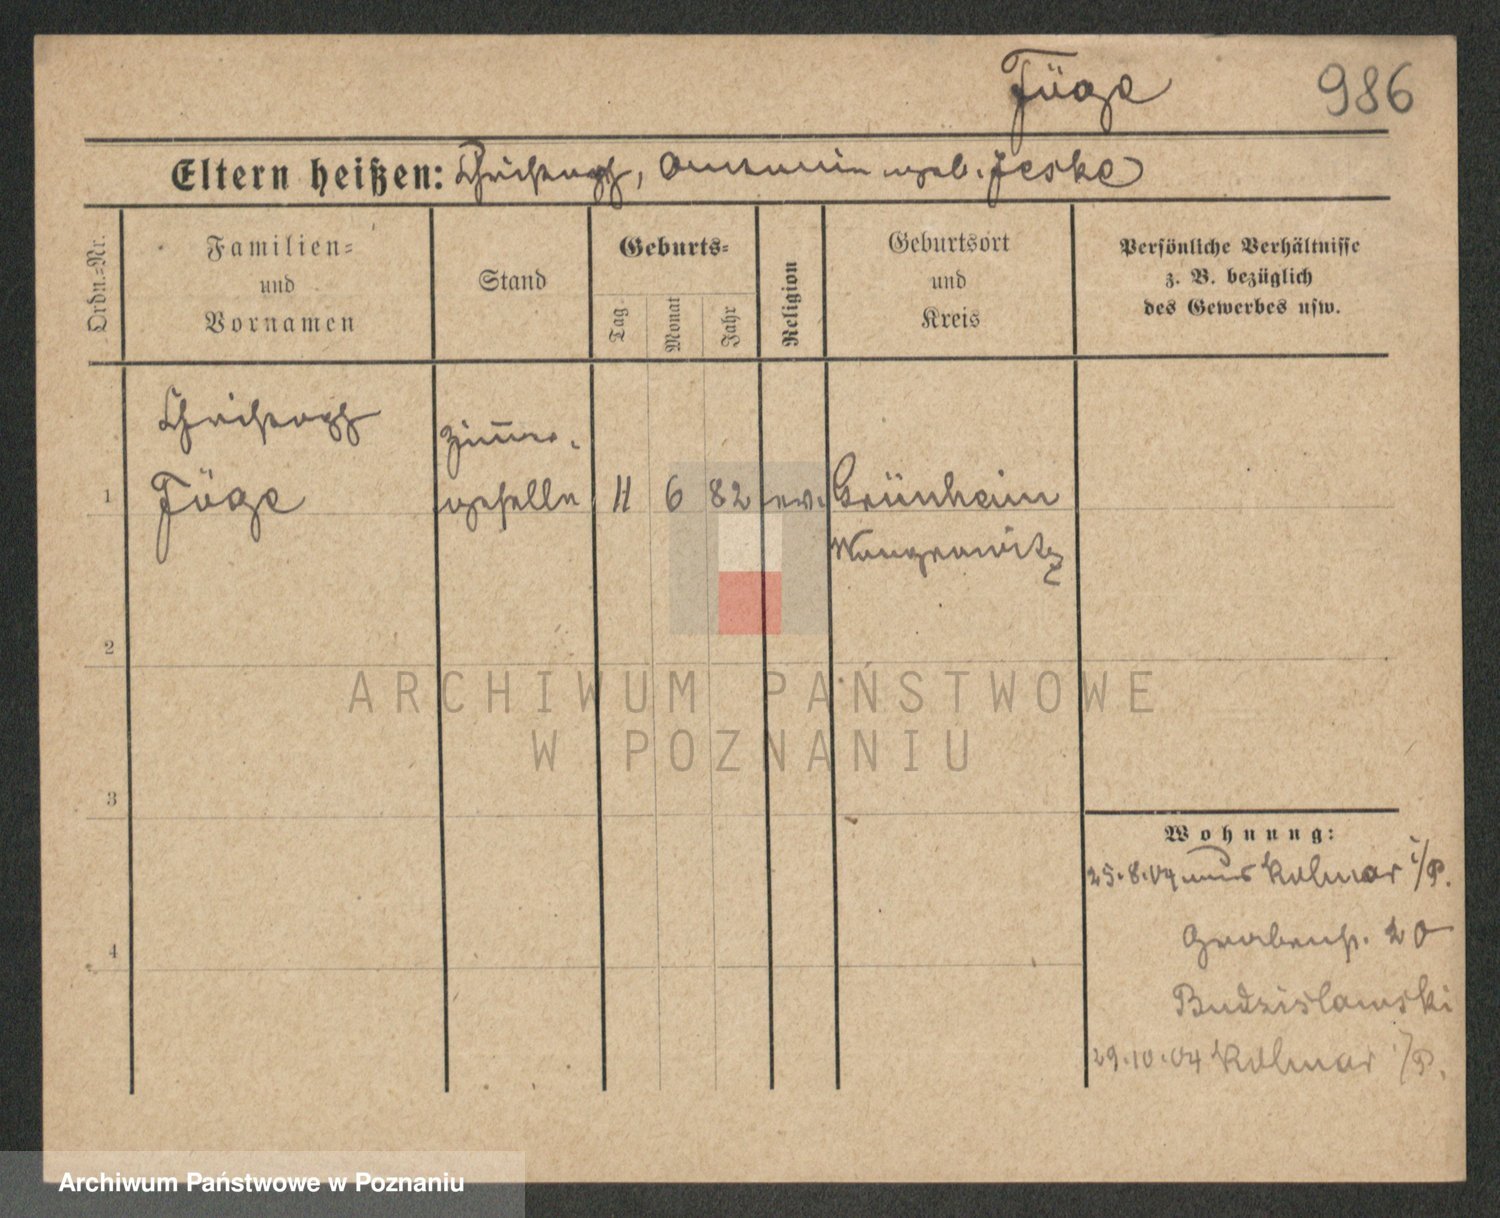 Füge 986
Eltern heißen: Christoph, geb. Jeske
Ordn.=Nr.
Familien=
und
Vornamen
Stand
Geburts=
Tag
Monat
Jahr
Religion
Geburtsort
und
Kreis
Persönliche Verhältnisse
z. B. bezüglich
des Gewerbes usw.
Christoph
Zimmer-
1 Füge geselle 11 6 82 ev. Grünheim
Wongrowitz
2
3
4
Wohnung:
25.8.04 aus Kolmar i/P.
Grabenstr. 20
Budzislawski
29.10.04 Kolmar i/P.
ARCHIWUM PAŃSTWOWE
W POZNANIU
Archiwum Państwowe w Poznaniu